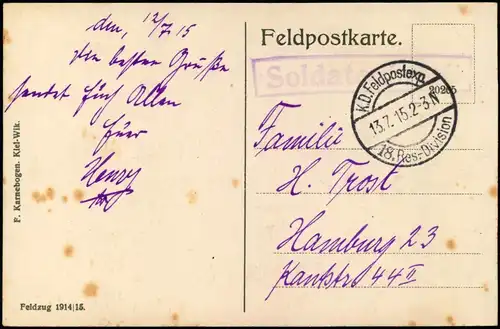 den, 12/7 15
Die besten Grüße
sendet Euch Allen
Euer
Henry
P. Karnehogen. Kiel-Wik.
Feldzug 1914|15.
Feldpostkarte.
Soldate
20265
K.D. Feldpostexp.
13.7.15.2-3.N
18. Res.-Division
Familie
H. Trost
Hamburg 23
Kantstr 44 II